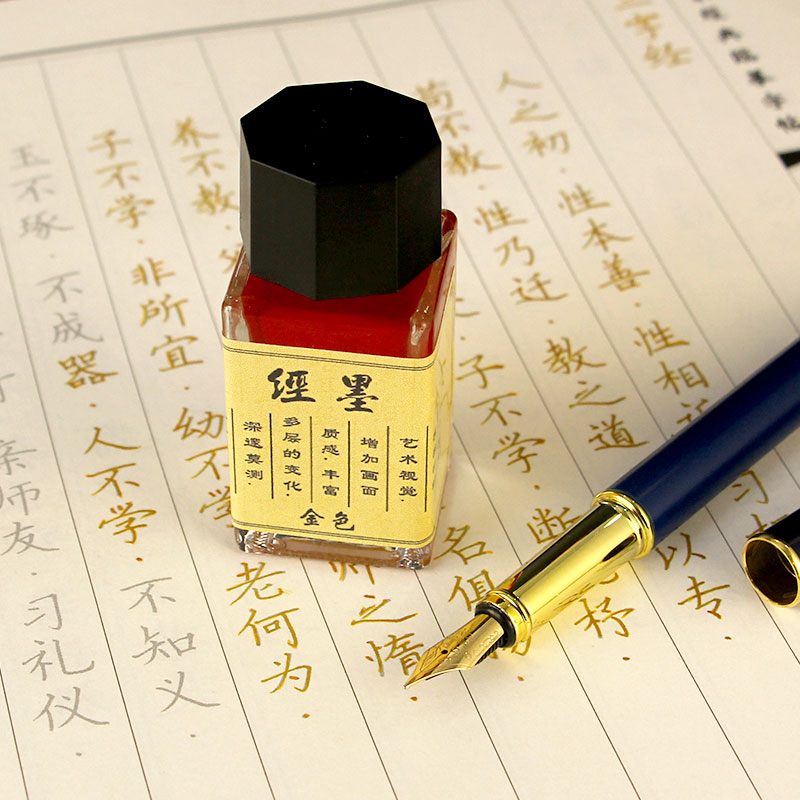 字经
字帖
人之初·性本善·性相
习
苟不教·性乃迁·教之道·
以专·
子不学·断
杼·
名俱
养不教·父
师之惰·
子不学·非所宜·幼不学·老何为·
玉不琢·不成器·人不学·不知义·
亲师友·习礼仪·
經墨
艺术视觉·
增加画面
质感·丰富
多层的变化·
深邃莫测·
金色